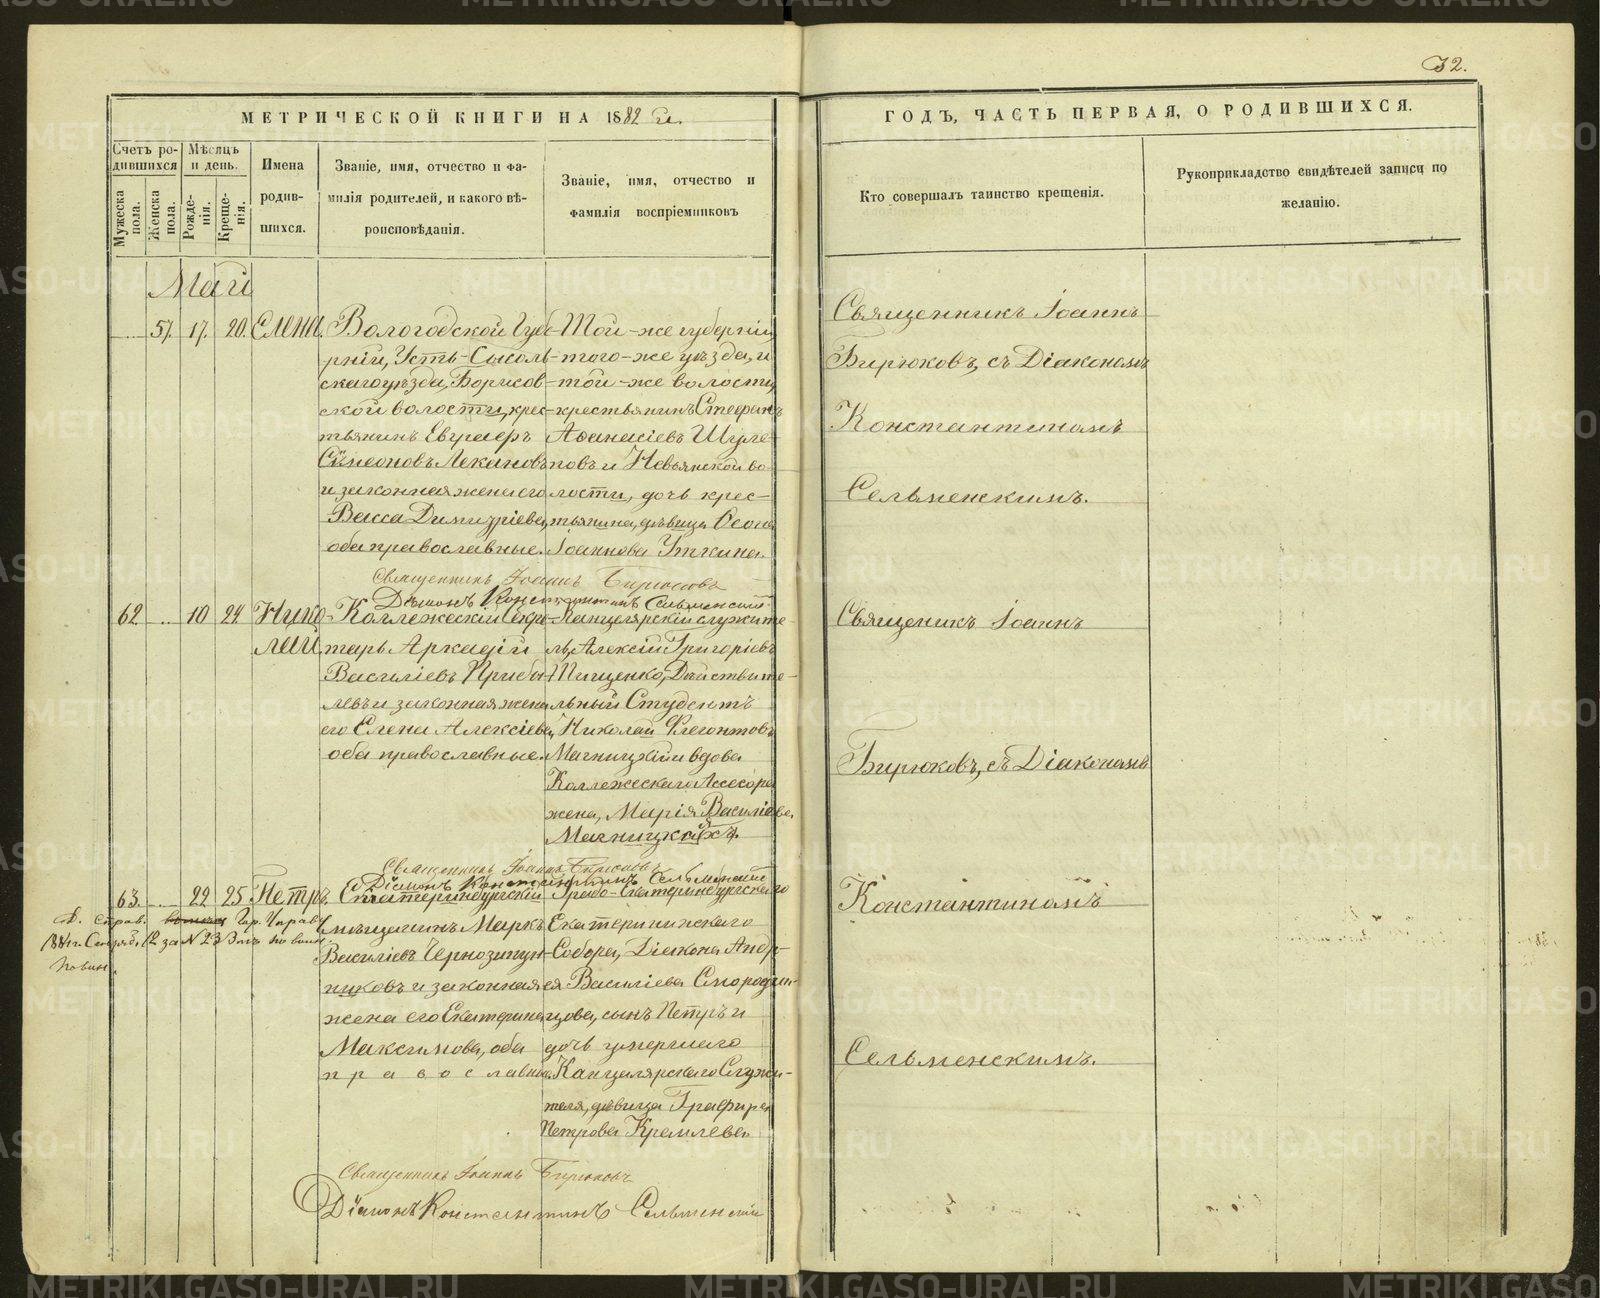 32.
МЕТРИЧЕСКОЙ КНИГИ НА 1882 г.
ГОДЪ, ЧАСТЬ ПЕРВАЯ, О РОДИВШИХСЯ.
Счетъ ро-
дившихся
Мужеска пола.
Женска пола.
Мѣсяцъ
и день.
Рожде-
нія.
Креще-
нія.
Имена
родив-
шихся.
Званіе, имя, отчество и фа-
милія родителей, и какого вѣ-
роисповѣданія.
Званіе, имя, отчество и
фамилія воспріемниковъ
Кто совершалъ таинство крещенія.
Рукоприкладство свидѣтелей записи по
желанію.
Май
57. 17. 20. Елена.
Вологодской Губе-
рніи, Усть-Сысоль-
скаго уѣзда, Борисов-
ской волости, крес-
тьянинъ
Сѵмеоновъ Лекановъ
и законная жена его
Васса Димитріева,
оба православные.
Той-же губерніи,
того-же уѣзда, и
той-же волости,
крестьянинъ Стефанъ
Аѳанасіевъ Шуле-
повъ и Невьянской во-
лости, дочь крес-
тьянина, дѣвица
Іоаннова Уткина.
Священникъ Іоаннъ
Бирюковъ, съ Діакономъ
Константиномъ
Сельменскимъ.
Священникъ Іоаннъ Бирюковъ
Діаконъ Константинъ Сельменскій
62 10 24 Нико-
лай
Коллежескій Секре-
тарь Аркадій
Василіевъ Прибы-
левъ и законная жена
его Елена Алексіева,
оба православные.
Канцелярскій служите-
ль, Алексій Григоріевъ
Пищенко, Дѣйствите-
льный Студентъ
Николай Флегонтовъ
Магницкій и вдова
Коллежескаго Ассесора
жена, Марія Василіева
Магницкая.
Священикъ Іоаннъ
Бирюковъ, съ Діакономъ
Константиномъ
Сельменскимъ.
Священникъ Іоаннъ Бирюковъ
Діаконъ Константинъ Сельменскій
63. 22 25 Петръ.
Екатеринбургскій
мѣщанинъ Маркъ
Василіевъ Чернозипун-
никовъ и законная
жена его Екатерина
Максимова, оба
православные.
Градо-Екатеринбургскаго
Екатерининскаго
Собора, Діакона Андр-
ея Василіева Смородин-
цова, сынъ Петръ и
дочь умершаго
Канцелярскаго Служи-
теля, дѣвица Графира
Петрова Кремлева
Священникъ Іоаннъ Бирюковъ
Діаконъ Константинъ Сельменскій
METRIKI.GASO-URAL.RU